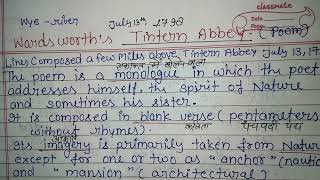 Wye - river July 13th 1798
classmate
Date
Page
Wordsworth's Tintern Abbey. (Poem)
Lines Composed a few Miles above Tintern Abbey July 13, 17
The poem is a monologue in which the poet
addresses himself, the spirit of Nature
and sometimes his sister.
It is composed in blank verse (pentameters
without rhymes). कविता पंचपदी पद्य
Its imagery is primarily taken from Nature
except for one or two as "anchor" (nautic
and "mansion" (architectural)